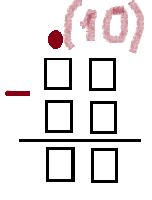 (10)
−